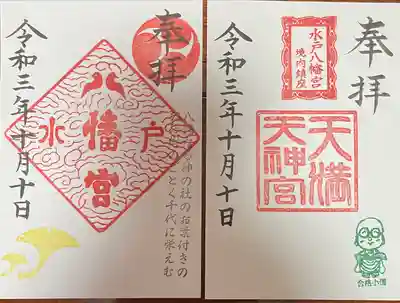 奉拝
水戸
八幡宮
神の社のお葉付きの
とく千代に栄えむ
令和三年十月十日
奉拝
水戸八幡宮
境内鎮座
天満
天神宮
令和三年十月十日
合格小僧